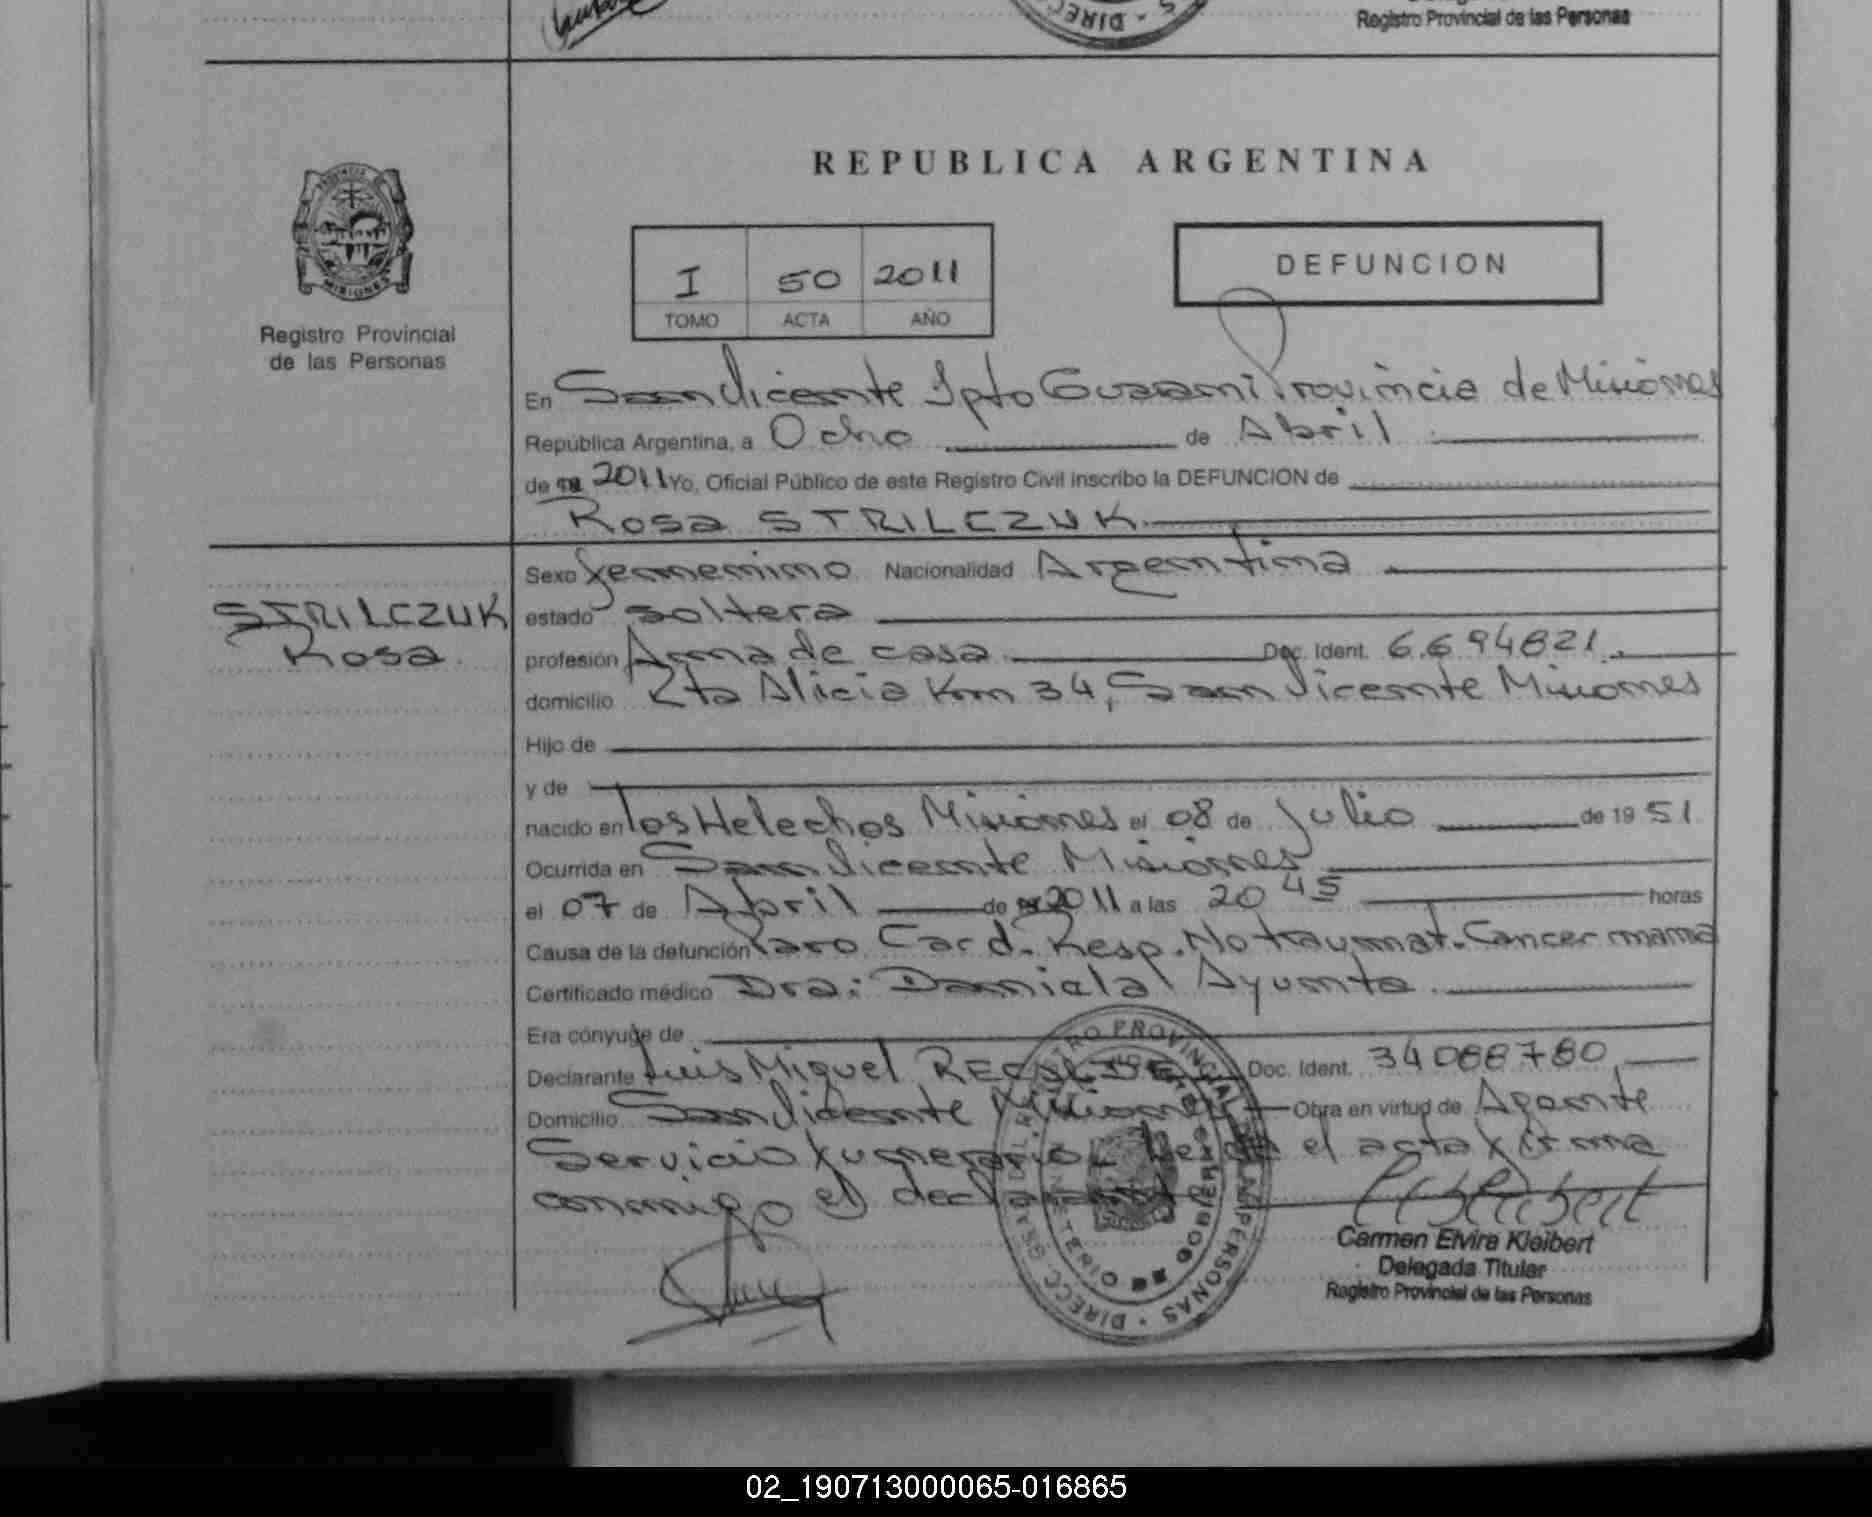 Registro Provincial de las Personas
REPUBLICA ARGENTINA
PROVINCIA
MISIONES
Registro Provincial
de las Personas
I 50 2011
TOMO ACTA AÑO
DEFUNCION
En San Vicente Dpto Guarani Provincia de Misiones
República Argentina, a Ocho de Abril
de 2011 Yo, Oficial Público de este Registro Civil inscribo la DEFUNCION de
Rosa STRILCZUK
STRILCZUK
Rosa
Sexo femenino Nacionalidad Argentina
estado soltera
profesión Ama de casa Doc. Ident. 6.694821
domicilio Rta Alicia Km 34, San Vicente Misiones
Hijo de
y de
nacido en Los Helechos Misiones el 08 de Julio de 1951
Ocurrida en San Vicente Misiones
el 07 de Abril de 2011 a las 20 45 horas
Causa de la defunción Paro Card. Resp. No traumat. Cancer mama
Certificado médico Dra: Daniela Ayunta
Era cónyuge de
Declarante Luis Miguel RECALDE Doc. Ident. 34088780
Domicilio San Vicente Misiones Obra en virtud de Agente
Servicio funerario. Leida el acta firma
conmigo el declarante
Carmen Elvira Kleibert
Delegada Titular
Registro Provincial de las Personas
02_190713000065-016865